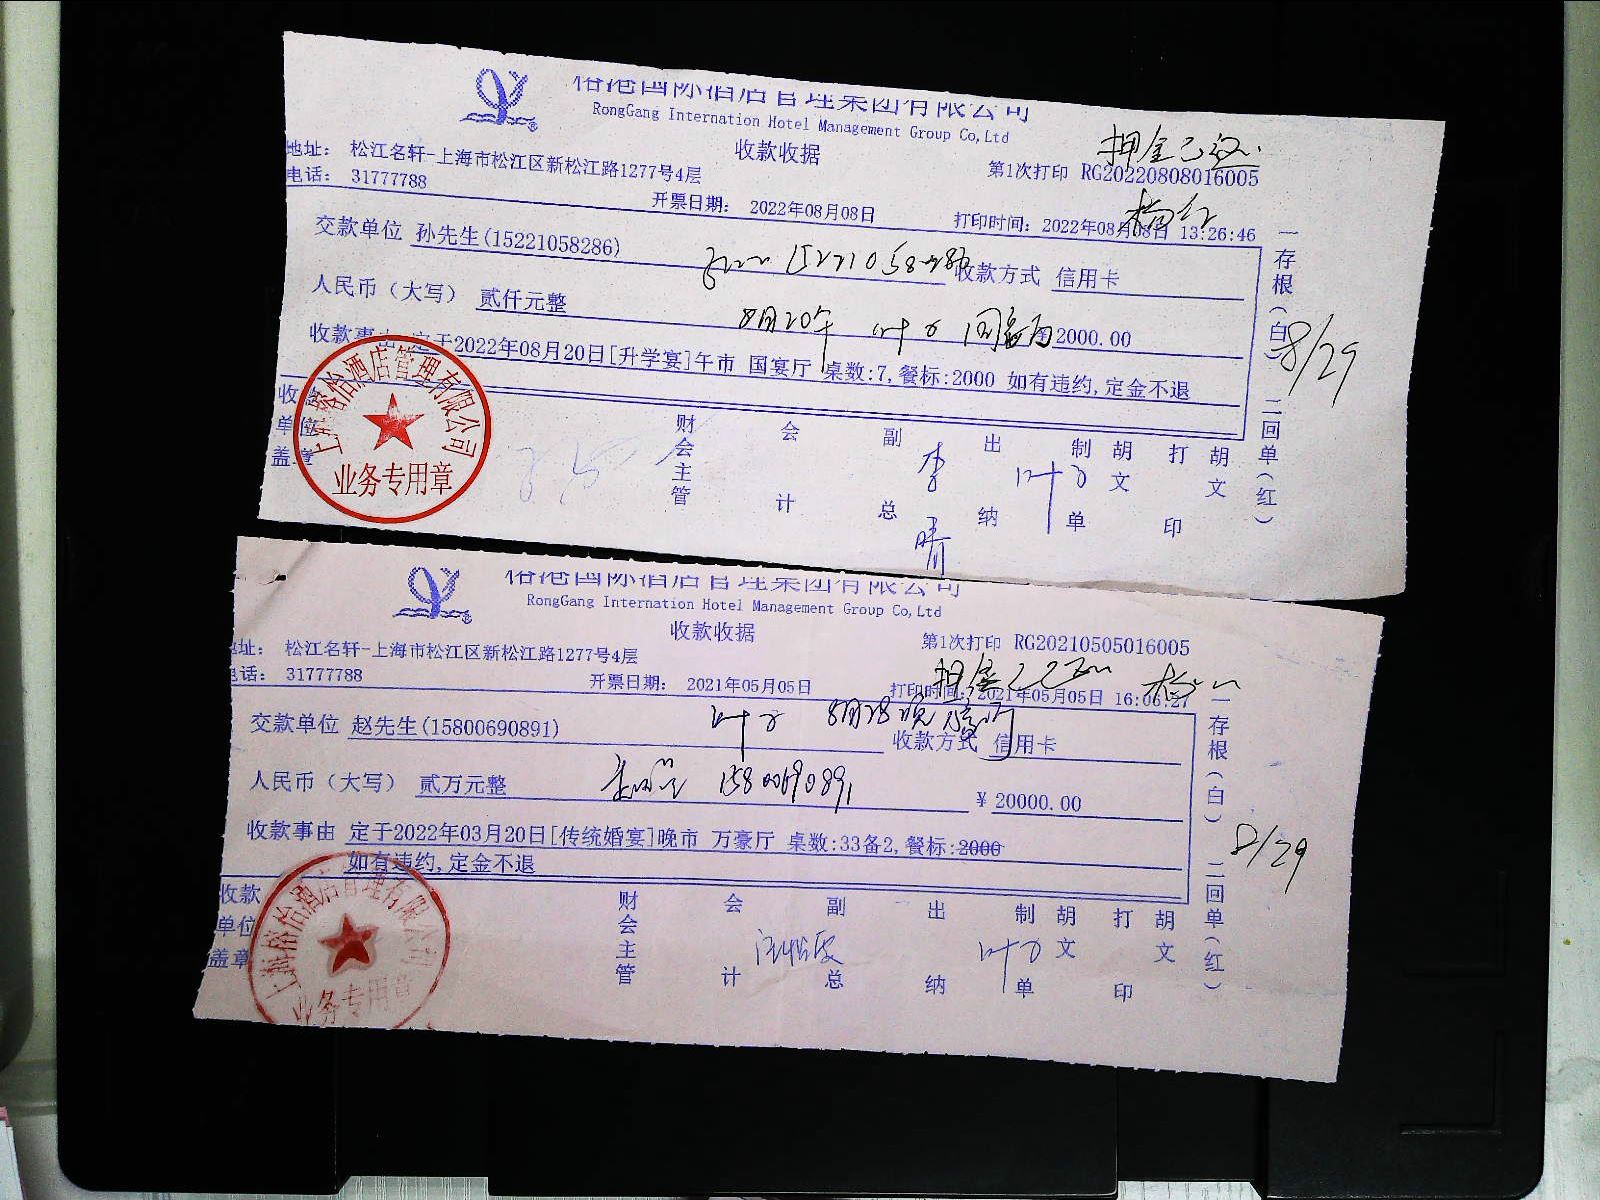 榕港国际酒店管理集团有限公司
RongGang Internation Hotel Management Group Co,Ltd
收款收据
押金已
地址: 松江名轩-上海市松江区新松江路1277号4层
第1次打印 RG20220808016005
电话: 31777788
开票日期: 2022年08月08日
打印时间: 2022年08月08日 13:26:46
交款单位 孙先生(15221058286)
15221058286
收款方式 信用卡
人民币（大写） 贰仟元整
8月20午 叶子 国宴厅
2000.00
收款事由 定于2022年08月20日[升学宴]午市 国宴厅 桌数:7,餐标:2000 如有违约,定金不退
8/29
一存根(白) 二回单(红)
收款单位盖章
上海榕怡酒店管理有限公司
业务专用章
财会主管 会计 副总 李晴 出纳 叶子 制单 胡文 打印 胡文
榕港国际酒店管理集团有限公司
RongGang Internation Hotel Management Group Co,Ltd
收款收据
第1次打印 RG20210505016005
地址: 松江名轩-上海市松江区新松江路1277号4层
押金
电话: 31777788
开票日期: 2021年05月05日
打印时间: 2021年05月05日 16:06:27
叶子 8月28晚
交款单位 赵先生(15800690891)
收款方式 信用卡
人民币（大写） 贰万元整
15800690891
¥ 20000.00
收款事由 定于2022年03月20日[传统婚宴]晚市 万豪厅 桌数:33备2,餐标:2000
如有违约,定金不退
8/29
一存根(白) 二回单(红)
收款单位盖章
上海榕怡酒店管理有限公司
业务专用章
财会主管 会计 副总 出纳 叶子 制单 胡文 打印 胡文